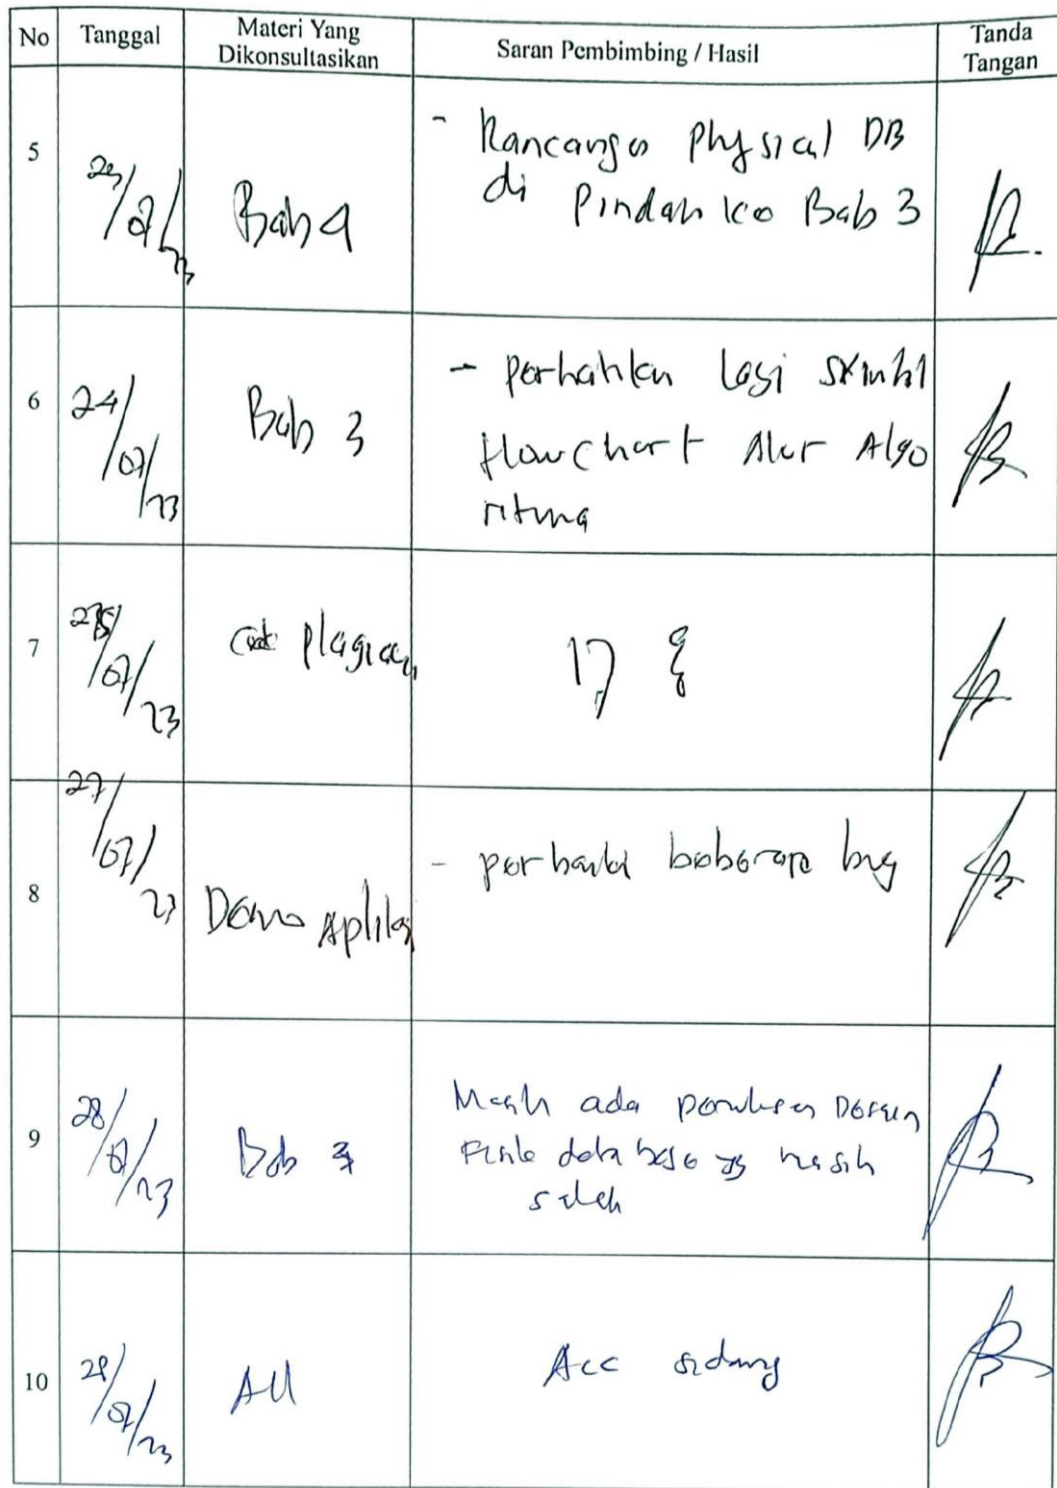 No Tanggal Materi Yang Dikonsultasikan Saran Pembimbing / Hasil Tanda Tangan
5
Bab 4
- Rancangan Physical DB
di Pindah ke Bab 3
6 24/07/23
Bab 3
- perhatikan lagi
flowchart Alur Algo
ritma
7 /07/23
Cek plagiasi
17 %
8 27/07/23
Demo Aplikasi
- perbaiki beberapa bug
9 28/07/23
Bab
Masih ada penulisan Desain
Fisik database yg masih
salah
10 28/07/23
All
Acc sidang